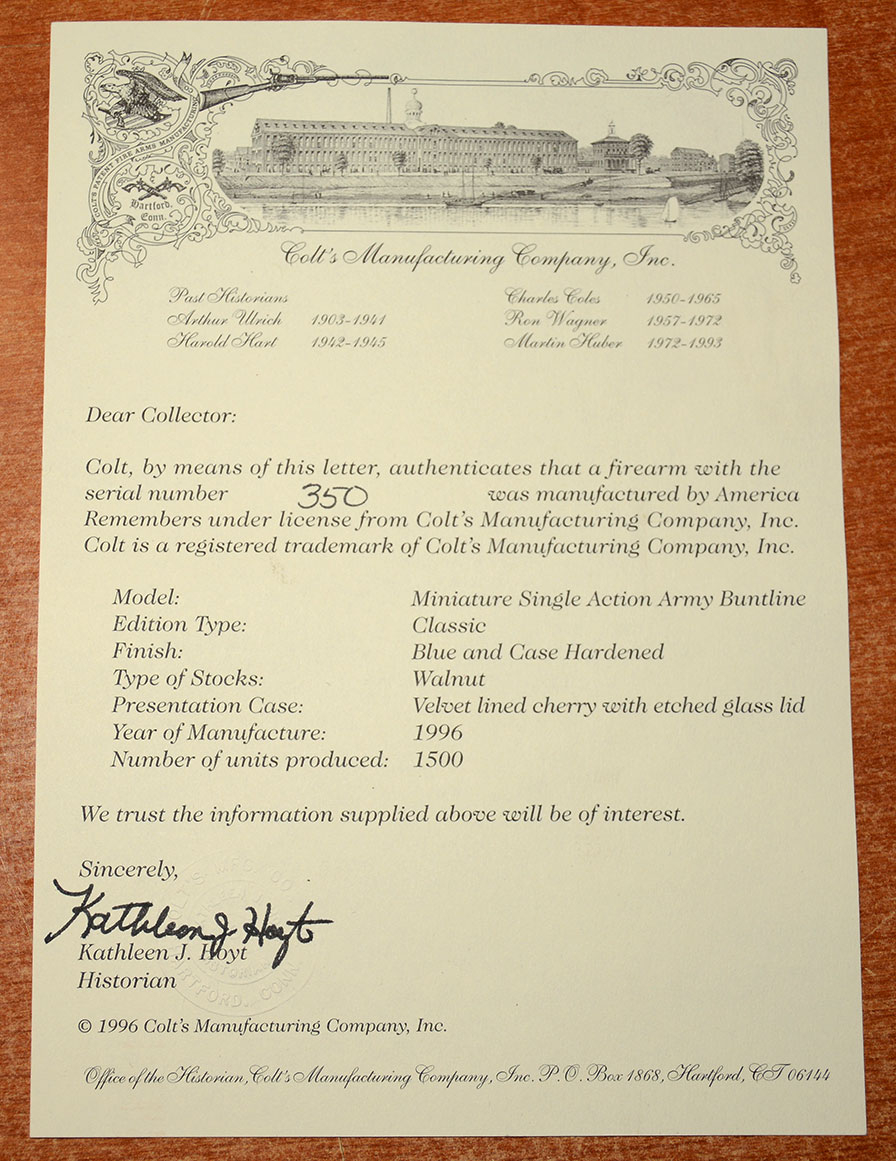 COLT'S PATENT FIRE ARMS MANUFACTURING
Hartford,
Conn.
Colt's Manufacturing Company, Inc.
Past Historians
Arthur Ulrich 1903-1941
Harold Hart 1942-1945
Charles Coles 1950-1965
Ron Wagner 1957-1972
Martin Huber 1972-1993
Dear Collector:
Colt, by means of this letter, authenticates that a firearm with the
serial number 350 was manufactured by America
Remembers under license from Colt's Manufacturing Company, Inc.
Colt is a registered trademark of Colt's Manufacturing Company, Inc.
Model: Miniature Single Action Army Buntline
Edition Type: Classic
Finish: Blue and Case Hardened
Type of Stocks: Walnut
Presentation Case: Velvet lined cherry with etched glass lid
Year of Manufacture: 1996
Number of units produced: 1500
We trust the information supplied above will be of interest.
Sincerely,
Kathleen J. Hoyt
Kathleen J. Hoyt
Historian
© 1996 Colt's Manufacturing Company, Inc.
Office of the Historian, Colt's Manufacturing Company, Inc. P.O. Box 1868, Hartford, CT 06144